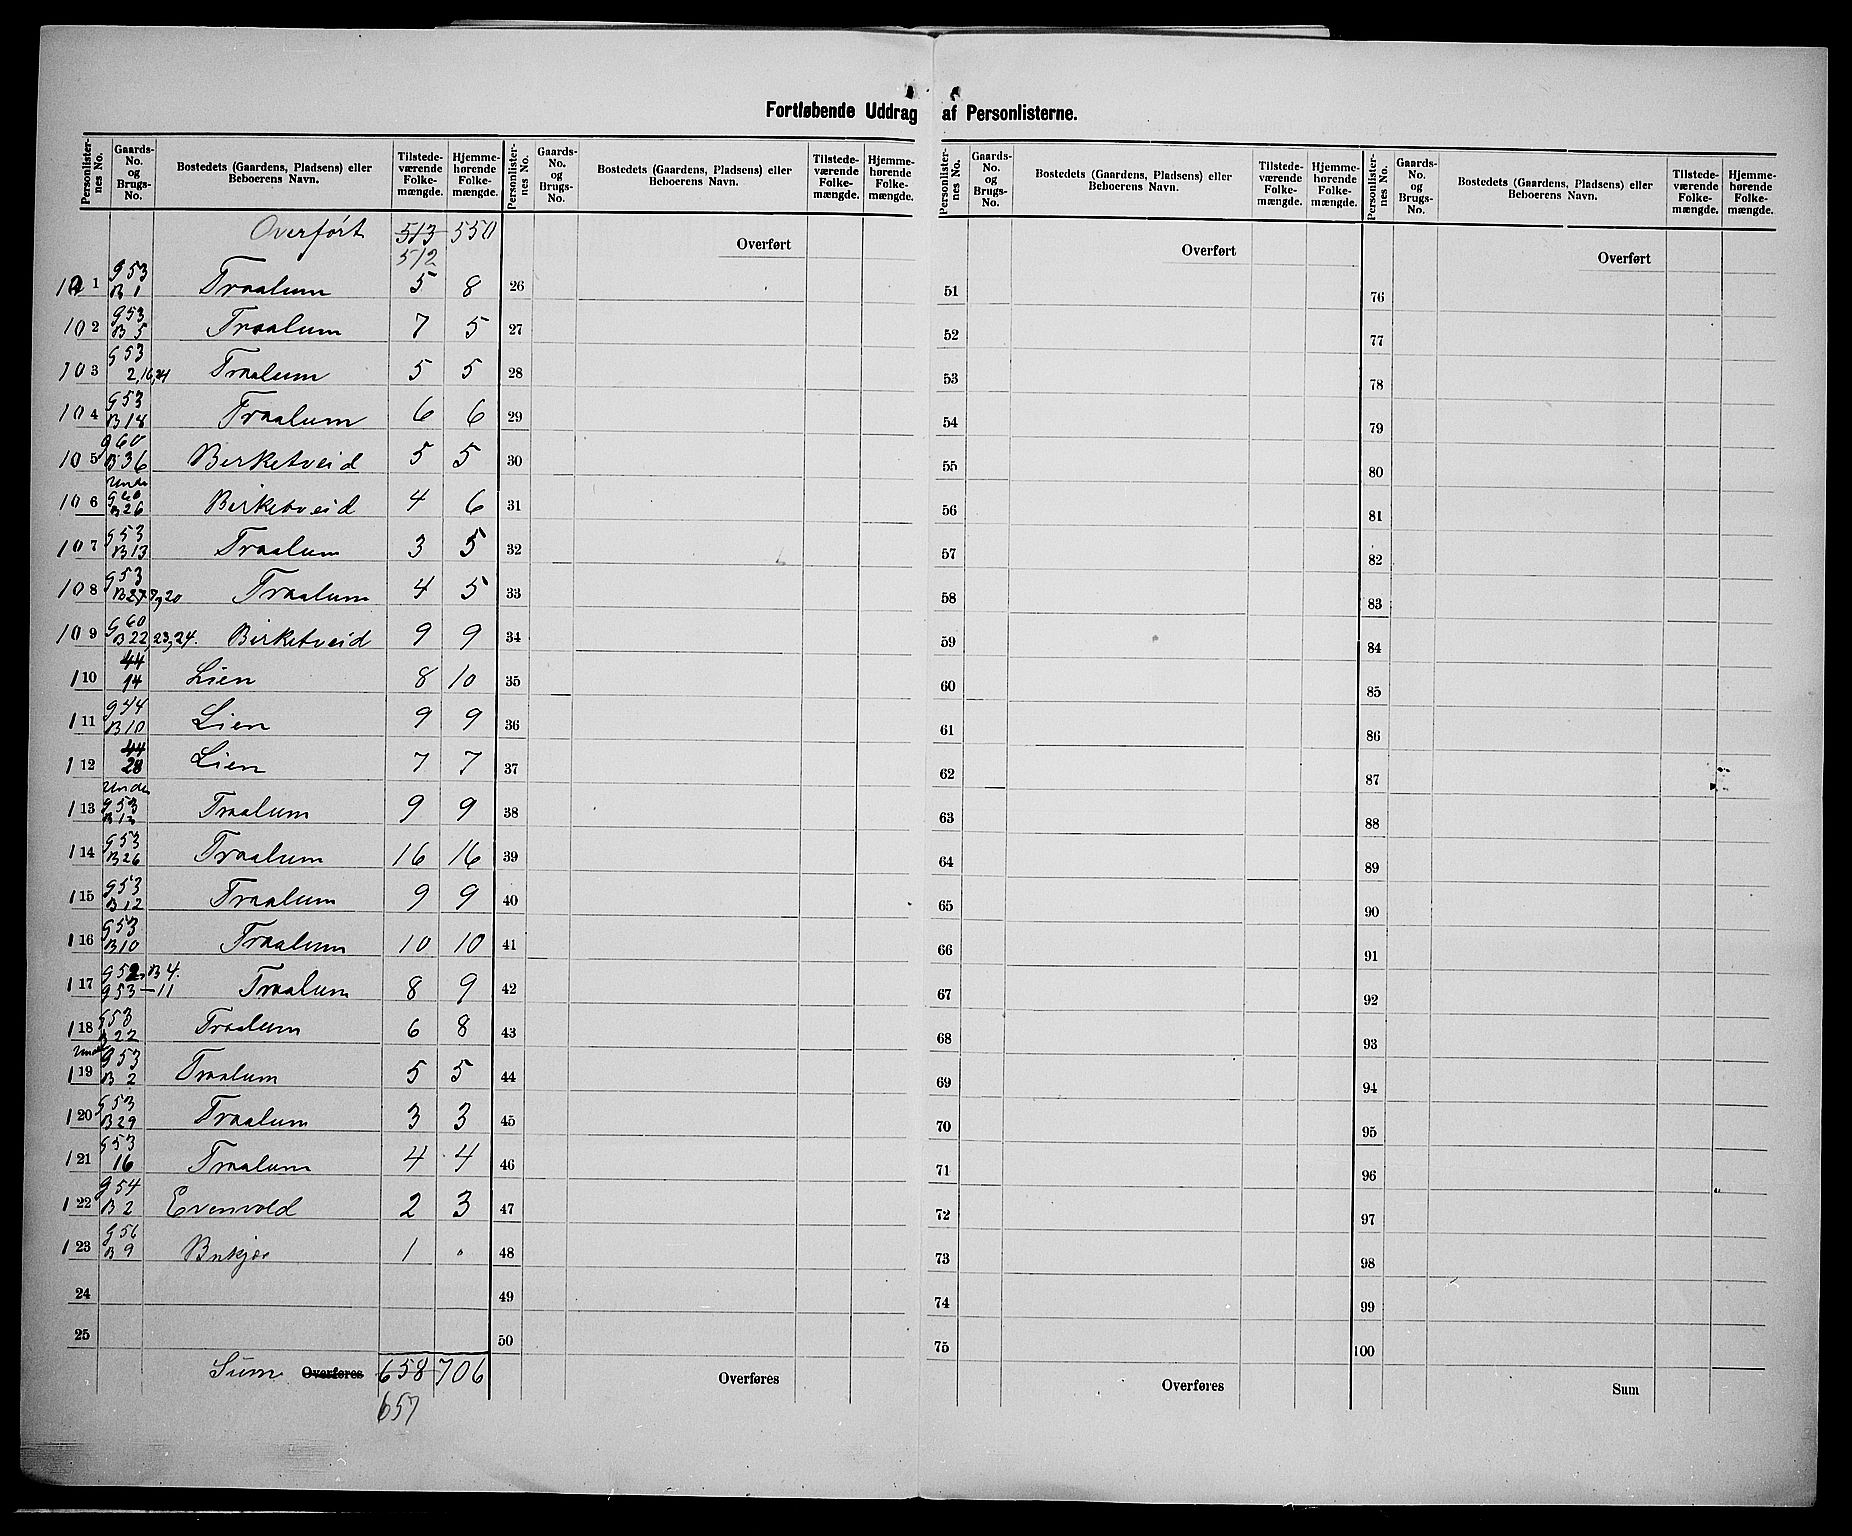 Fortløbende Uddrag af Personlisterne.
Personlister-nes No. | Gaards-No. og Brugs-No. | Bostedets (Gaardens, Pladsens) eller Beboerens Navn. | Tilstede-værende Folke-mængde. | Hjemme-hørende Folke-mængde.
Overført 513 550
512
101 g 53 B 1 Traalum 5 8
102 g 53 B 5 Traalum 7 5
103 g 53 2, 16, 24 Traalum 5 5
104 g 53 B 18 Traalum 6 6
105 g 60 B 36 Birketveid 5 5
106 Under g 60 B 26 Birketveid 4 6
107 g 53 B 13 Traalum 3 5
108 g 53 B 27, 20 Traalum 4 5
109 g 60 B 22, 23, 24. Birketveid 9 9
110 44 14 Lien 8 10
111 g 44 B 10 Lien 9 9
112 44 28 Lien 7 7
113 Under g 53 B 12 Traalum 9 9
114 g 53 B 26 Traalum 16 16
115 g 53 B 12 Traalum 9 9
116 g 53 B 10 Traalum 10 10
117 g 52, B 4. g 53 — 11 Traalum 8 9
118 g 53 B 22 Traalum 6 8
119 Under g 53 B 2 Traalum 5 5
120 g 53 B 29 Traalum 3 3
121 g 53 16 Traalum 4 4
122 g 54 B 2 Evenvold 2 3
123 g 56 B 9 1 "
24
25
Sum Overføres 658 706
657
Personlister-nes No. | Gaards-No. og Brugs-No. | Bostedets (Gaardens, Pladsens) eller Beboerens Navn. | Tilstede-værende Folke-mængde. | Hjemme-hørende Folke-mængde.
Overført
26
27
28
29
30
31
32
33
34
35
36
37
38
39
40
41
42
43
44
45
46
47
48
49
50
Overføres
Personlister-nes No. | Gaards-No. og Brugs-No. | Bostedets (Gaardens, Pladsens) eller Beboerens Navn. | Tilstede-værende Folke-mængde. | Hjemme-hørende Folke-mængde.
Overført
51
52
53
54
55
56
57
58
59
60
61
62
63
64
65
66
67
68
69
70
71
72
73
74
75
Overføres
Personlister-nes No. | Gaards-No. og Brugs-No. | Bostedets (Gaardens, Pladsens) eller Beboerens Navn. | Tilstede-værende Folke-mængde. | Hjemme-hørende Folke-mængde.
Overført
76
77
78
79
80
81
82
83
84
85
86
87
88
89
90
91
92
93
94
95
96
97
98
99
100
Sum